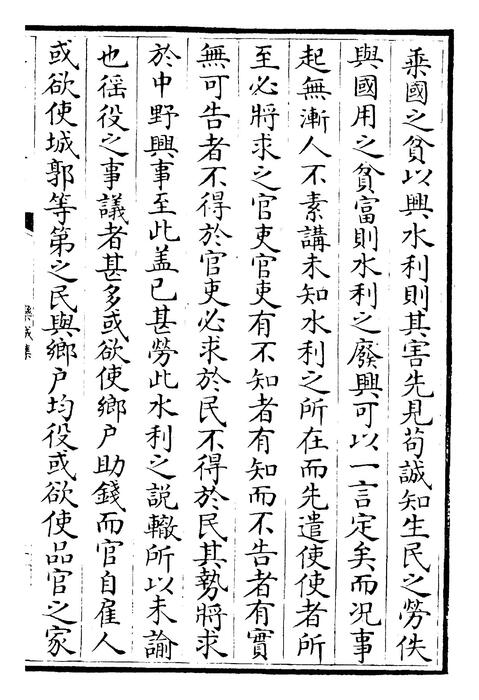 乗國之貧以興水利則其害先見苟誠知生民之勞佚
與國用之貧富則水利之廢興可以一言定矣而况事
起無漸人不素講未知水利之所在而先遣使使者所
至必將求之官吏官吏有不知者有知而不告者有實
無可告者不得於官吏必求於民不得於民其勢將求
於中野興事至此盖已甚勞此水利之說轍所以未諭
也徭役之事議者甚多或欲使鄉户助錢而官自雇人
或欲使城郭等第之民與鄉户均役或欲使品官之家
欒城集